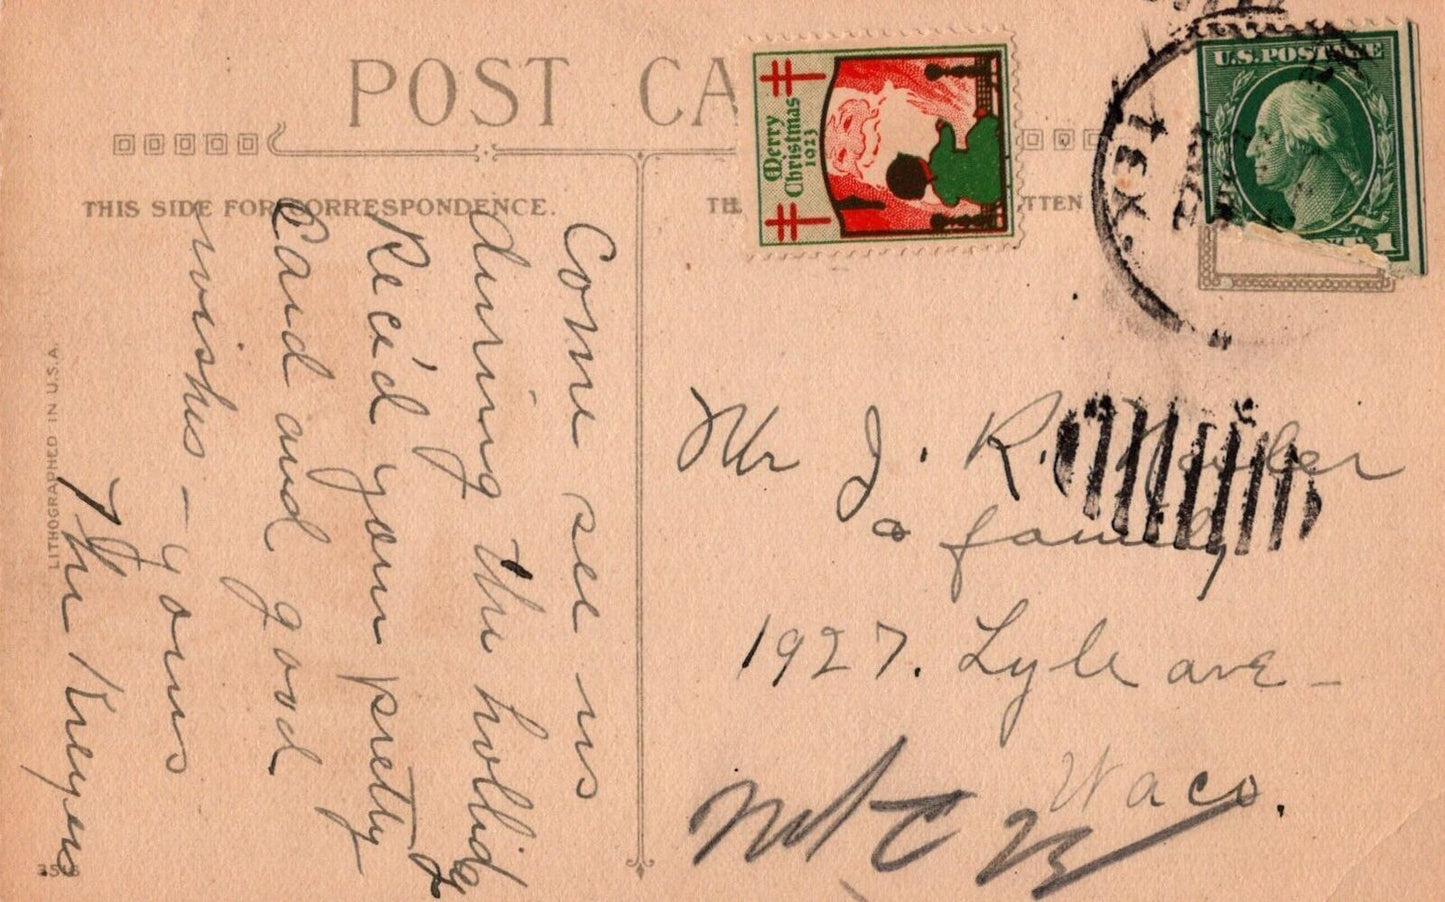 POST CA
THIS SIDE FOR CORRESPONDENCE.
TH TTEN
Merry
Christmas
1923
U.S. POSTAGE
1
TEX.
Come see us
during the hollid
Rec'd your pretty
Card and good
wishes – yours
The Kreyers
Mr J. R.
& family
1927. Lyle ave –
Waco.
LITHOGRAPHED IN U.S.A.